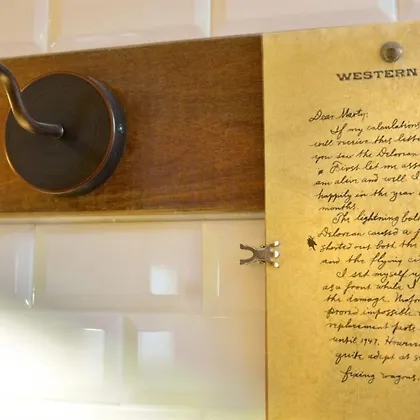 WESTERN
Dear Marty,
If my calculations
will receive this letter
you saw the Delorean
First let me ass
am alive and well. I
happily in the year
months.
The lightning bol
Delorean caused a
shorted out both the
and the flying ci
I set myself
as a front while I
the damage.
proved impossible
replacement parts
until 1947. However
quite adept at s
fixing wagons.